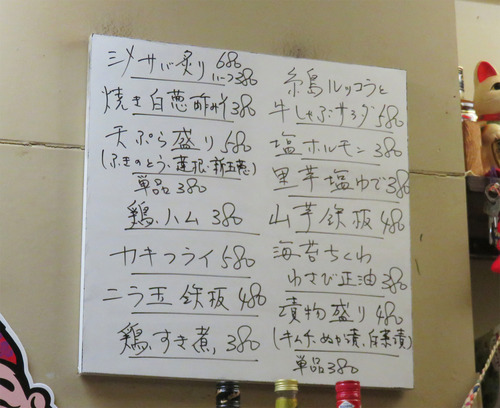 〆サバ炙り 680
ハーフ380
焼き白葱酢みそ380
天ぷら盛り 580
(ふきのとう、蓮根、新玉葱)
単品 380
鶏ハム 380
カキフライ 580
ニラ玉鉄板 480
鶏すき煮 380
糸島ルッコラと
牛しゃぶサラダ 580
塩ホルモン 380
里芋塩ゆで380
山芋鉄板 480
海苔ちくわ
わさび正油 380
漬物盛り 480
(キムチ、ぬか漬、白菜漬)
単品380